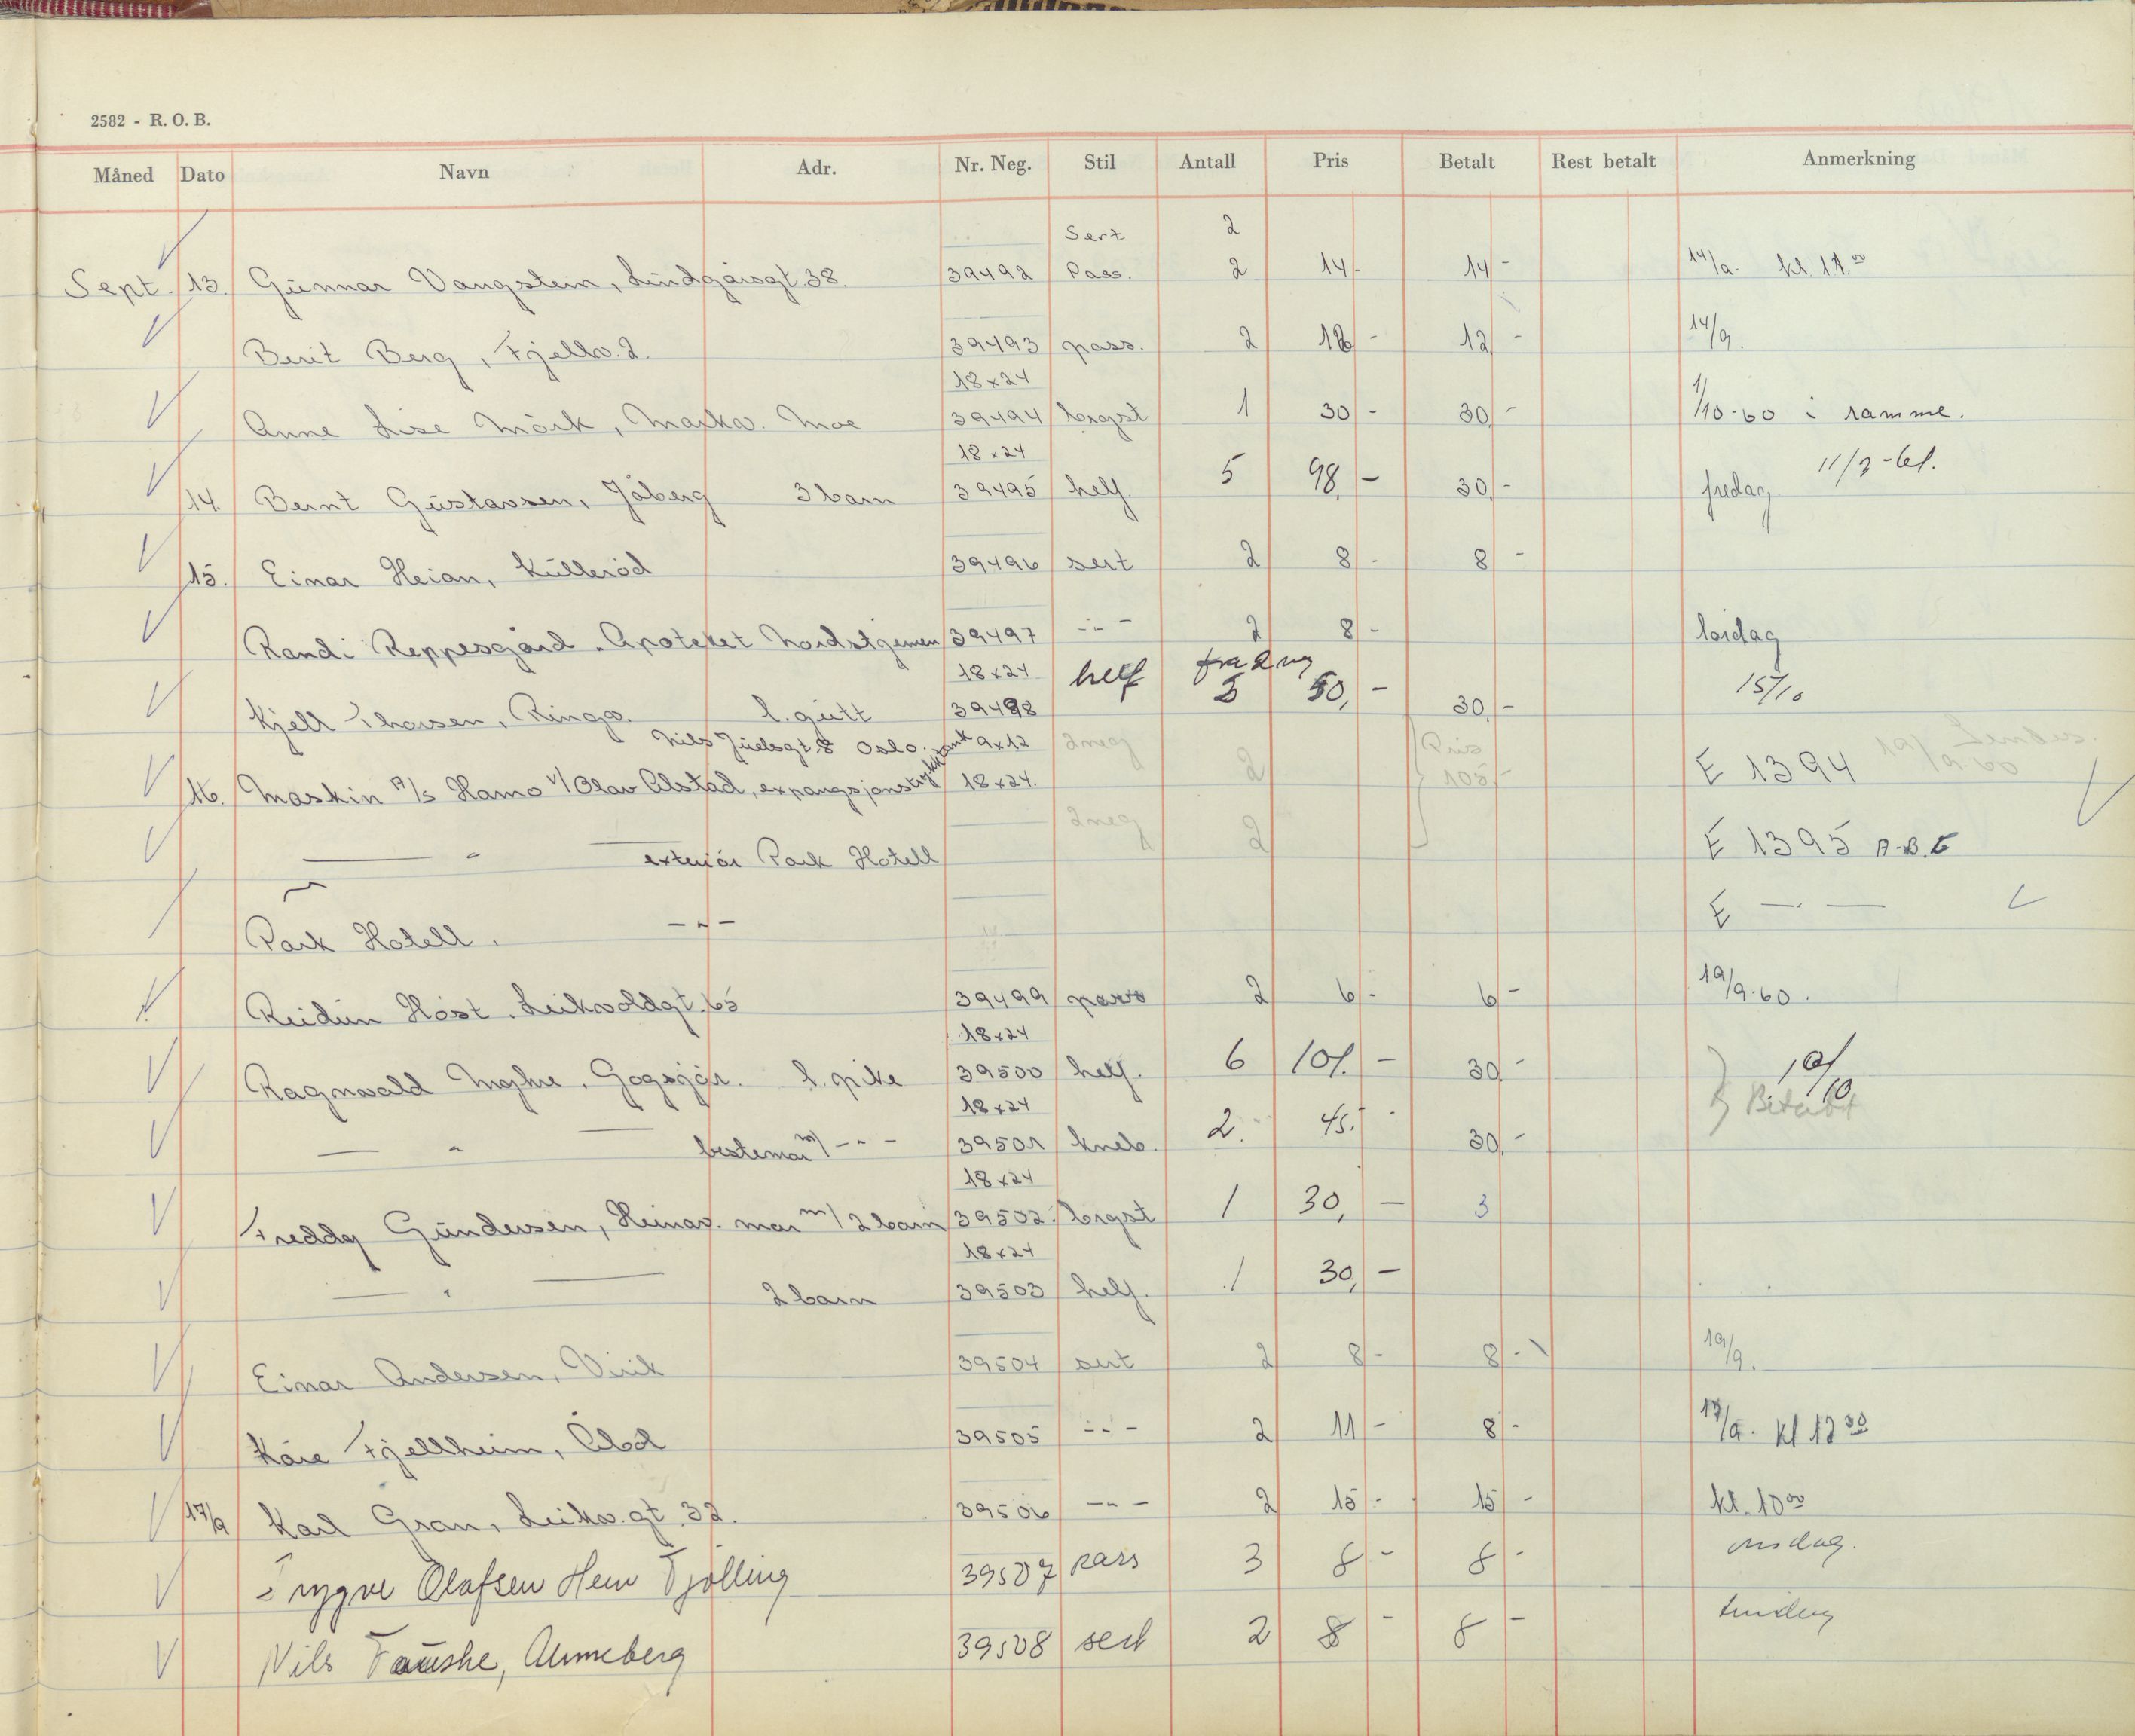 2582 - R. O. B.
Måned Dato Navn Adr. Nr. Neg. Stil Antall Pris Betalt Rest betalt Anmerkning
Sert 2
Sept. 13. Gunnar Vangstein, Lindgårsgt. 38. 39492 Pass. 2 14,- 14,- 14/9. kl. 11.00
Berit Berg, Fjellv. 2. 39493 pass. 2 12,- 12,- 14/9.
18x24
Anne Lise Mörk, Markv. Moe 39494 brgst 1 30,- 30,- 1/10-60 i ramme.
18x24 11/3-61.
14. Bernt Gustavsen, Jåberg 3 barn 39495 helf. 5 98,- 30,- fredag
15. Einar Heian, Kulleröd 39496 sert 2 8,- 8,-
Randi Reppesgård. Apoteket Nordstjernen 39497 -"- 2 8,- lördag
18x24 helf fra 2 neg
Kjell Thorsen, Ringv. l. gutt 39498 5 50,- 30,- 15/10
Nils Juelsgt. 8 Oslo. 9x12 2 neg 2 Pris 105,-
16. Maskin A/S Hamo v/Olav Alstad, expangsjonstrykktank 18x24. E 1394
2 neg 2
—"— exteriör Park Hotell E 1395 A-B.C
Park Hotell. -"- E —"—
Reidun Höst. Leikvoldgt. 65 39499 pass 2 6,- 6,- 19/9-60.
18x24
Ragnvald Myhre, Gogsjör. l. pike 39500 helf. 6 101,- 30,- Betalt
18x24
—"— bestemor m/ -"- 39501 kneb. 2. 45,- 30,-
18x24
Freddy Gundersen, Heinav. mor m/ 2 barn 39502. brgst 1 30,- 3
18x24
—"— 2 barn 39503 helf. 1 30,-
Einar Andersen, Virik 39504 sert 2 8,- 8,- 19/9.
Kåre Fjellheim, 39505 -"- 2 11,- 8,- 17/9. kl 12 30
17/9 Karl Gran, Leikv. gt. 32. 39506 -"- 2 15,- 15,- kl. 10 00
Trygve Olafsen Hem Tjölling 39507 pass 3 8,- 8,- onsdag.
Nils Fauske, Unneberg 39508 sert 2 8,- 8,- tirsdag